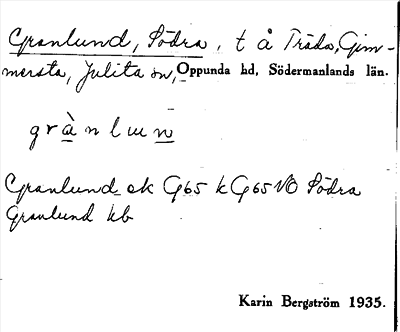 Granlund, Södra, t å Träda, Gim-
mersta, Julita sn, Oppunda hd, Södermanlands län.
grànlun
Granlund ek G65 k G65 VO Södra
Granlund hb
Karin Bergström 1935.